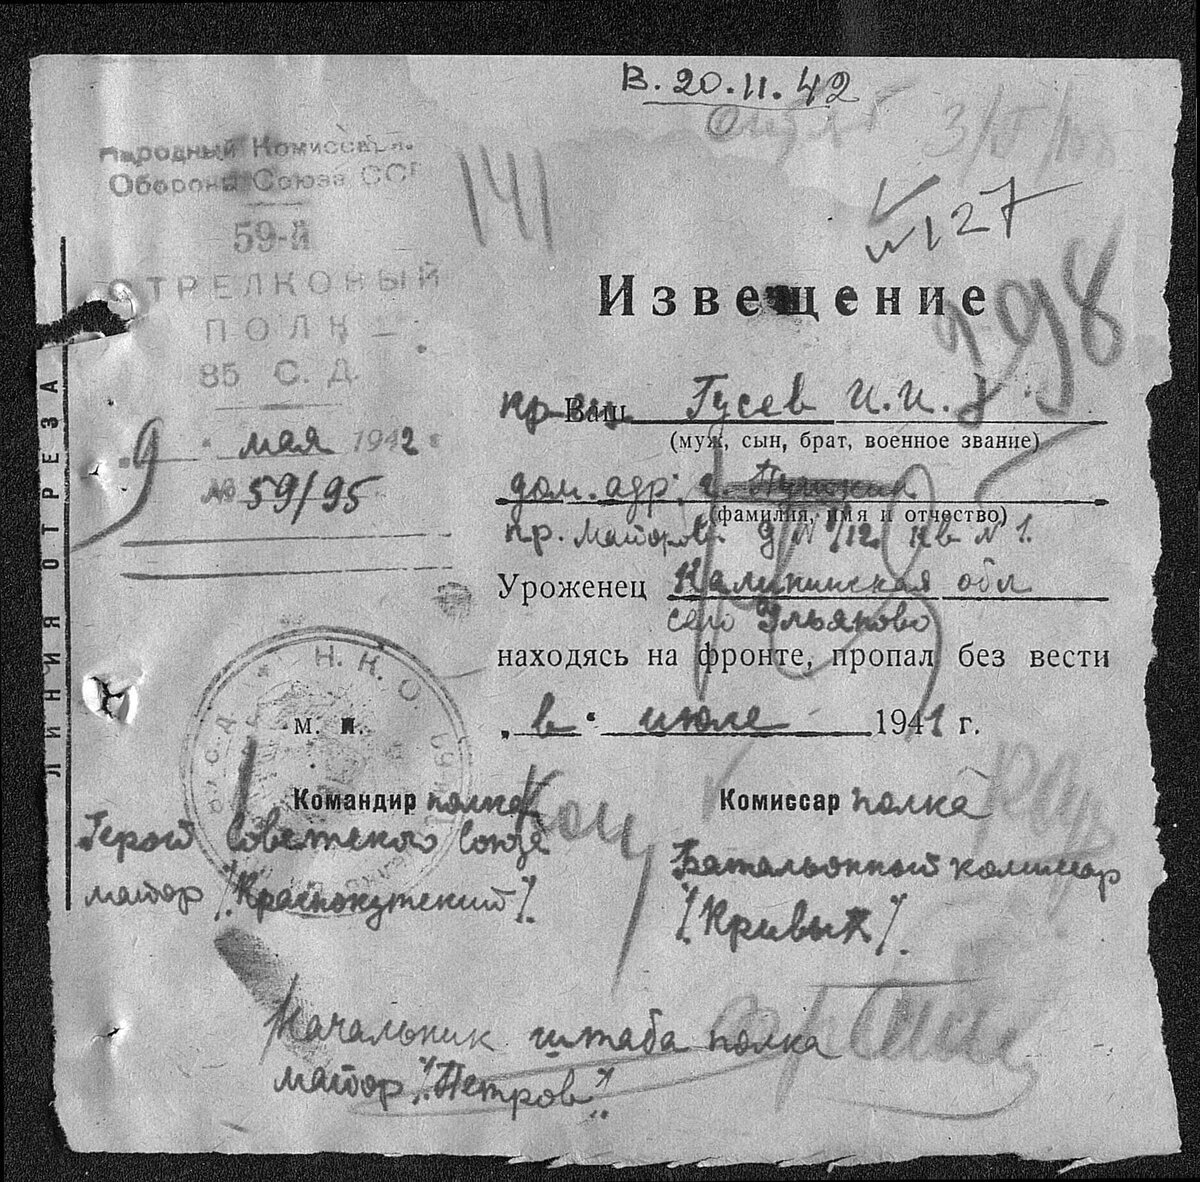 В. 20.11.42
Народный Комиссариат
Обороны Союза ССР
59-й
СТРЕЛКОВЫЙ
ПОЛК
85 С. Д.
9 мая 1942 г
№ 59/95
ЛИНИЯ ОТРЕЗА
141
№127
998
Извещение
Ваш Гусев И.И.
(муж, сын, брат, военное звание)
дом. адр; г. Пушкин
(фамилия, имя и отчество)
пр. Майорова д № 1/12 кв № 1.
Уроженец Калининская обл
село Ульяково
находясь на фронте, пропал без вести
„ в " июле 1941 г.
м. п.
Н. К. О
Командир полка
Герой Советского Союза
майор /Краснокутский/.
Комиссар полка
Батальонный комиссар
/Кривых/.
Начальник штаба полка
майор "Петров"